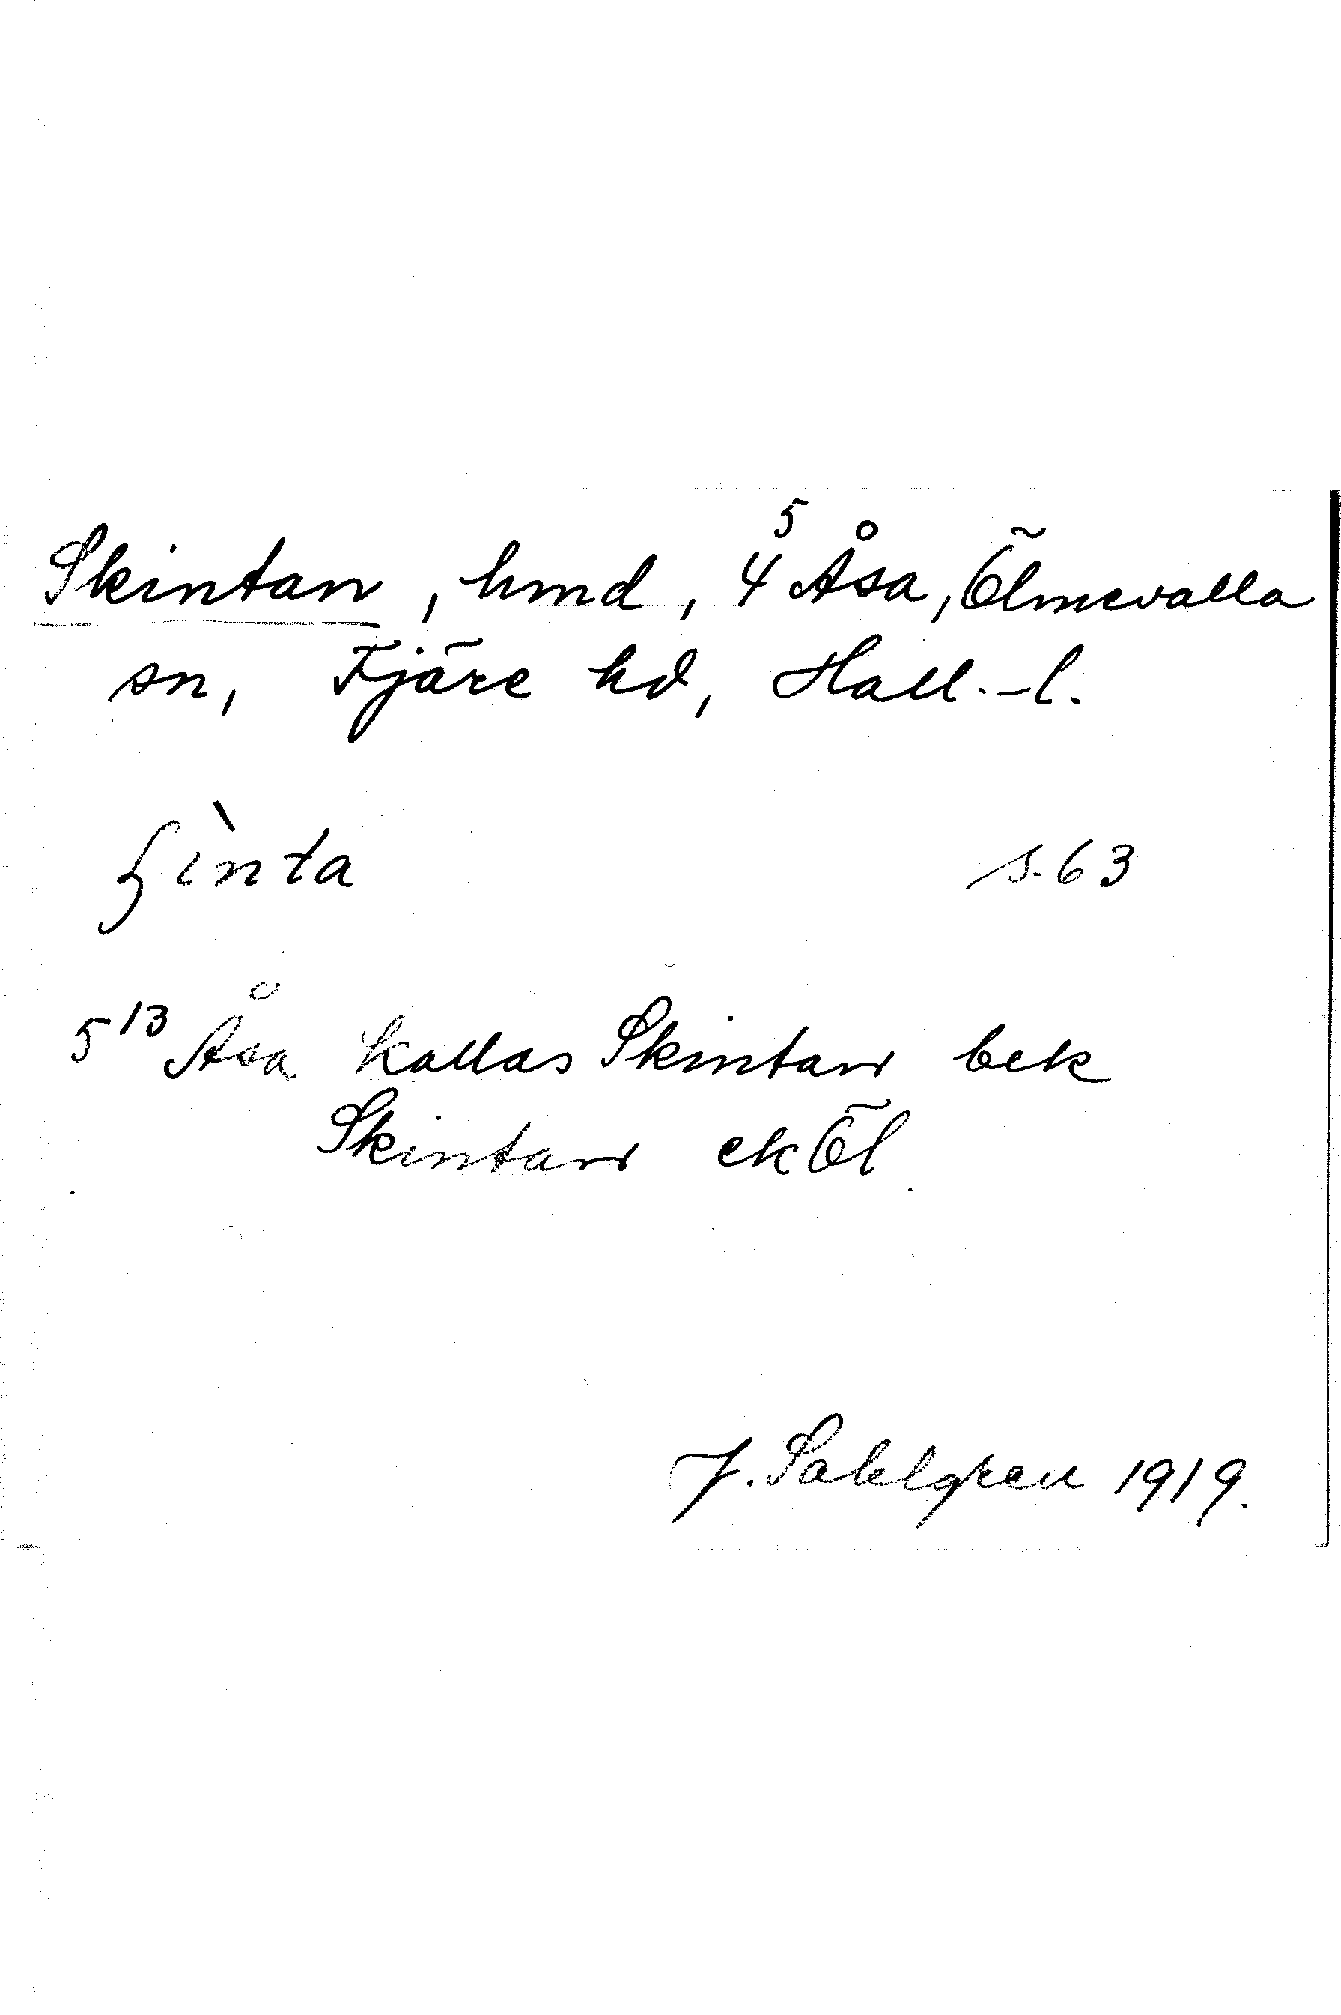 Skintan, hmd, 4⁵ Åsa, Ölmevalla
sn, Fjäre hd, Hall.-l.
ʃìnta s. 63
5¹³ Åsa kallas Skintan bek
Skintan ek Öl
J. Sahlgren 1919.